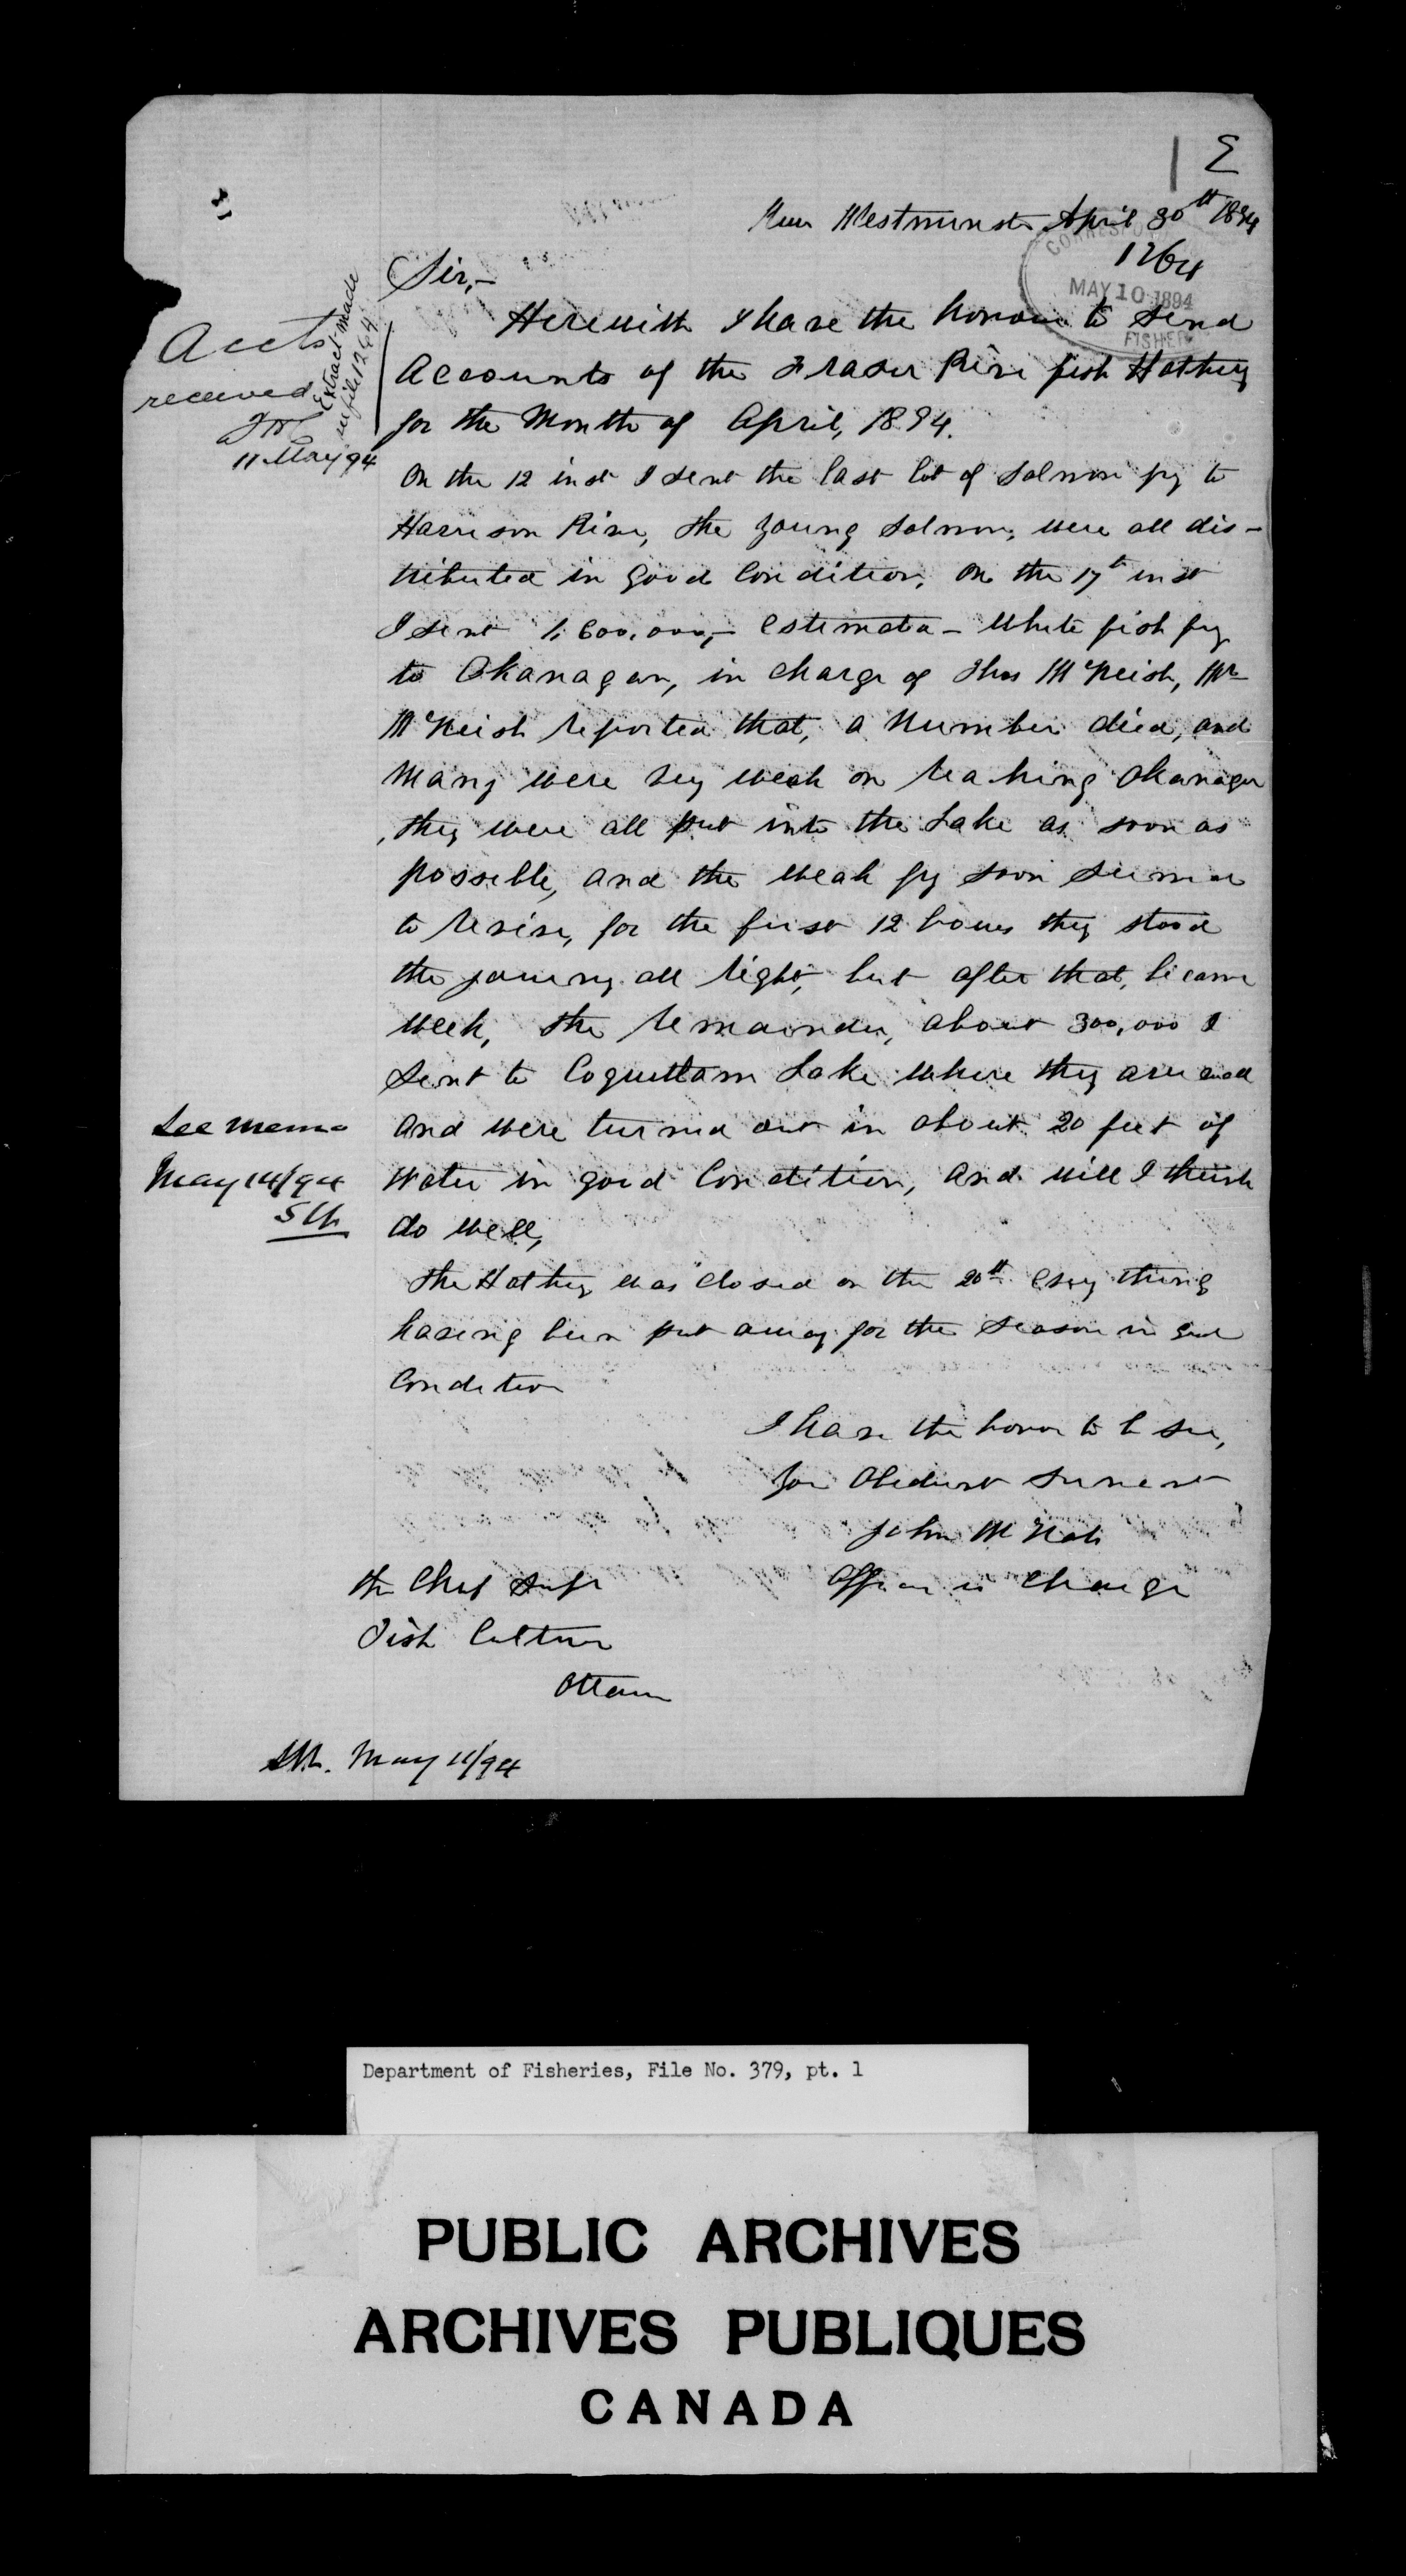 E
New Westminster April 30th 1894
1264
MAY 10 1894
FISHER
Sir,-
Herewith I have the honour to send
Accounts of the Fraser River fish Hatchery
for the Month of April, 1894.
Accts
received
11 May 94
Extract made
in file 1264
On the 12 inst I sent the last lot of Salmon fry to
Harrison River, the young Salmon, were all dis-
tributed in good Condition, On the 17th inst
I sent 1,600,000,- estimated - White fish fry
to Okanagan, in charge of Thos McNeish, Mr
McNeish reported that, a number died, and
many were very weak on reaching Okanagan
, they were all put into the Lake as soon as
possible, and the weak fry soon seemed
to revive, for the first 12 hours they stood
the journey all right, but after that, became
weak, the remainder, about 300,000 I
sent to Coquitlam Lake where they arrived
and were turned out in about 20 feet of
Water in good Condition, and will I think
do well,
See memo
May 14/94
The Hatchery was closed on the 20th every thing
having been put away for the season in good
Condition
I have the honor to be Sir,
Your Obedient Servant
John McNab
Officer in Charge
The Chief Supt
Fish Culture
Ottawa
May 11/94
Department of Fisheries, File No. 379, pt. 1
PUBLIC ARCHIVES
ARCHIVES PUBLIQUES
CANADA